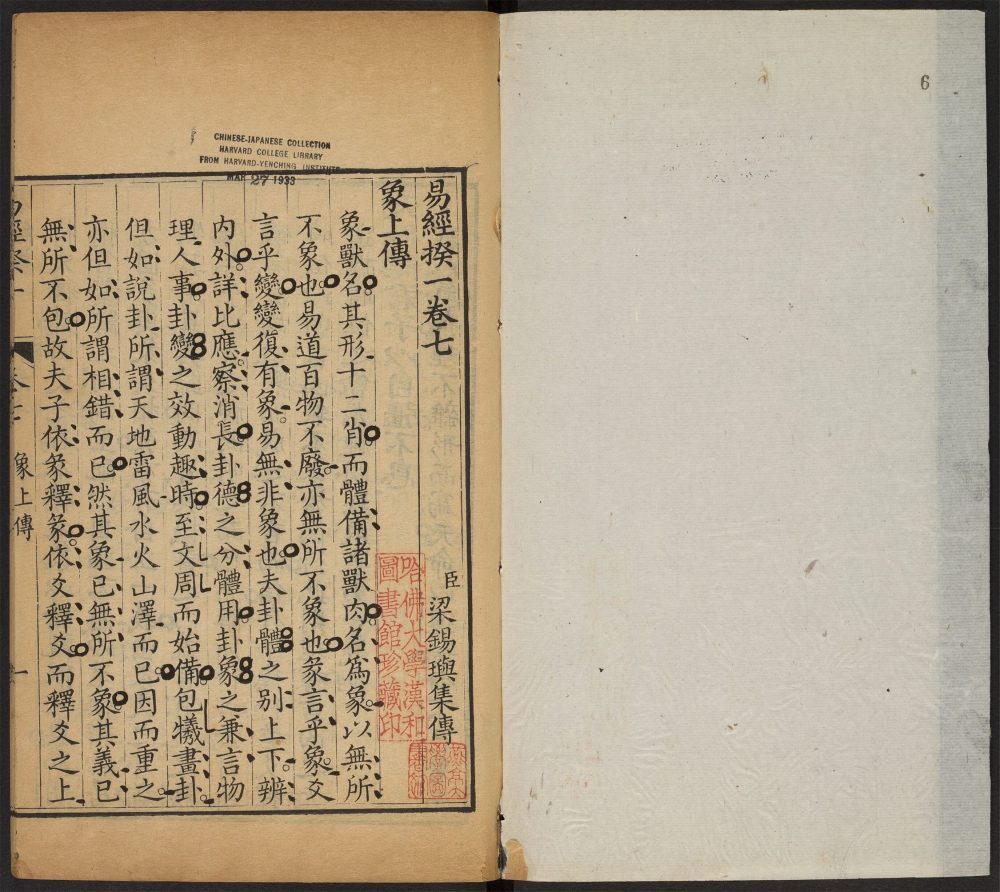 6
CHINESE-JAPANESE COLLECTION
HARVARD COLLEGE LIBRARY
FROM HARVARD-YENCHING INSTITUTE
MAR 27 1933
易經揆一卷七
臣梁錫璵集傳
哈佛大學漢和
圖書館珍藏印
象上傳
象獸名其形十二肖而體備諸獸肉名爲象以無所
不象也易道百物不廢亦無所不象也彖言乎象爻
言乎變變復有象易無非象也夫卦體之別上下辨
内外詳比應察消長卦德之分體用卦象之兼言物
理人事卦變之效動趣時至文周而始備包犧畫卦
但如說卦所謂天地雷風水火山澤而已因而重之
亦但如所謂相錯而已然其象已無所不象其義已
無所不包故夫子依彖釋彖依爻釋爻而釋爻之上
易經揆一
卷七
象上傳
一